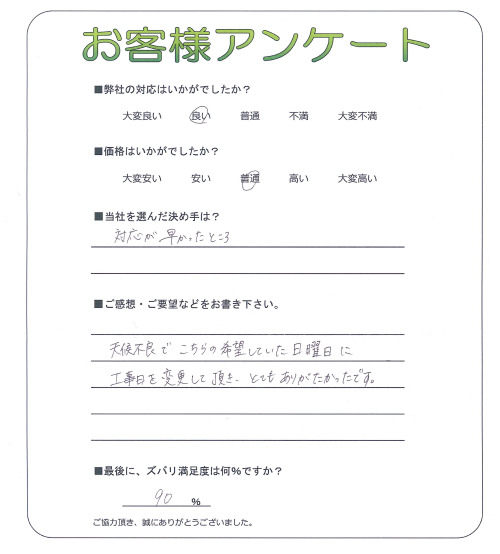 お客様アンケート
■弊社の対応はいかがでしたか？
大変良い 良い 普通 不満 大変不満
■価格はいかがでしたか？
大変安い 安い 普通 高い 大変高い
■当社を選んだ決め手は？
対応が早かったところ
■ご感想・ご要望などをお書き下さい。
天候不良で こちらの希望していた日曜日に
工事日を変更して頂き、とてもありがたかったです。
■最後に、ズバリ満足度は何%ですか？
90 %
ご協力頂き、誠にありがとうございました。